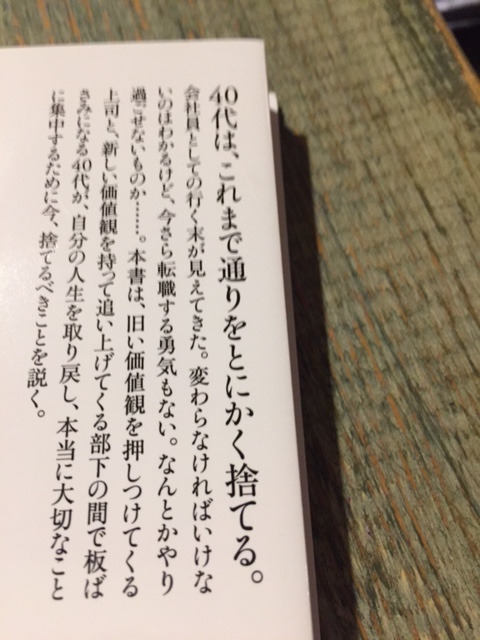 40代は、これまで通りをとにかく捨てる。
会社員としての行く末が見えてきた。変わらなければいけな
いのはわかるけど、今さら転職する勇気もない。なんとかやり
過ごせないものか……。本書は、旧い価値観を押しつけてくる
上司と、新しい価値観を持って追い上げてくる部下の間で板ば
さみになる40代が、自分の人生を取り戻し、本当に大切なこと
に集中するために今、捨てるべきことを説く。